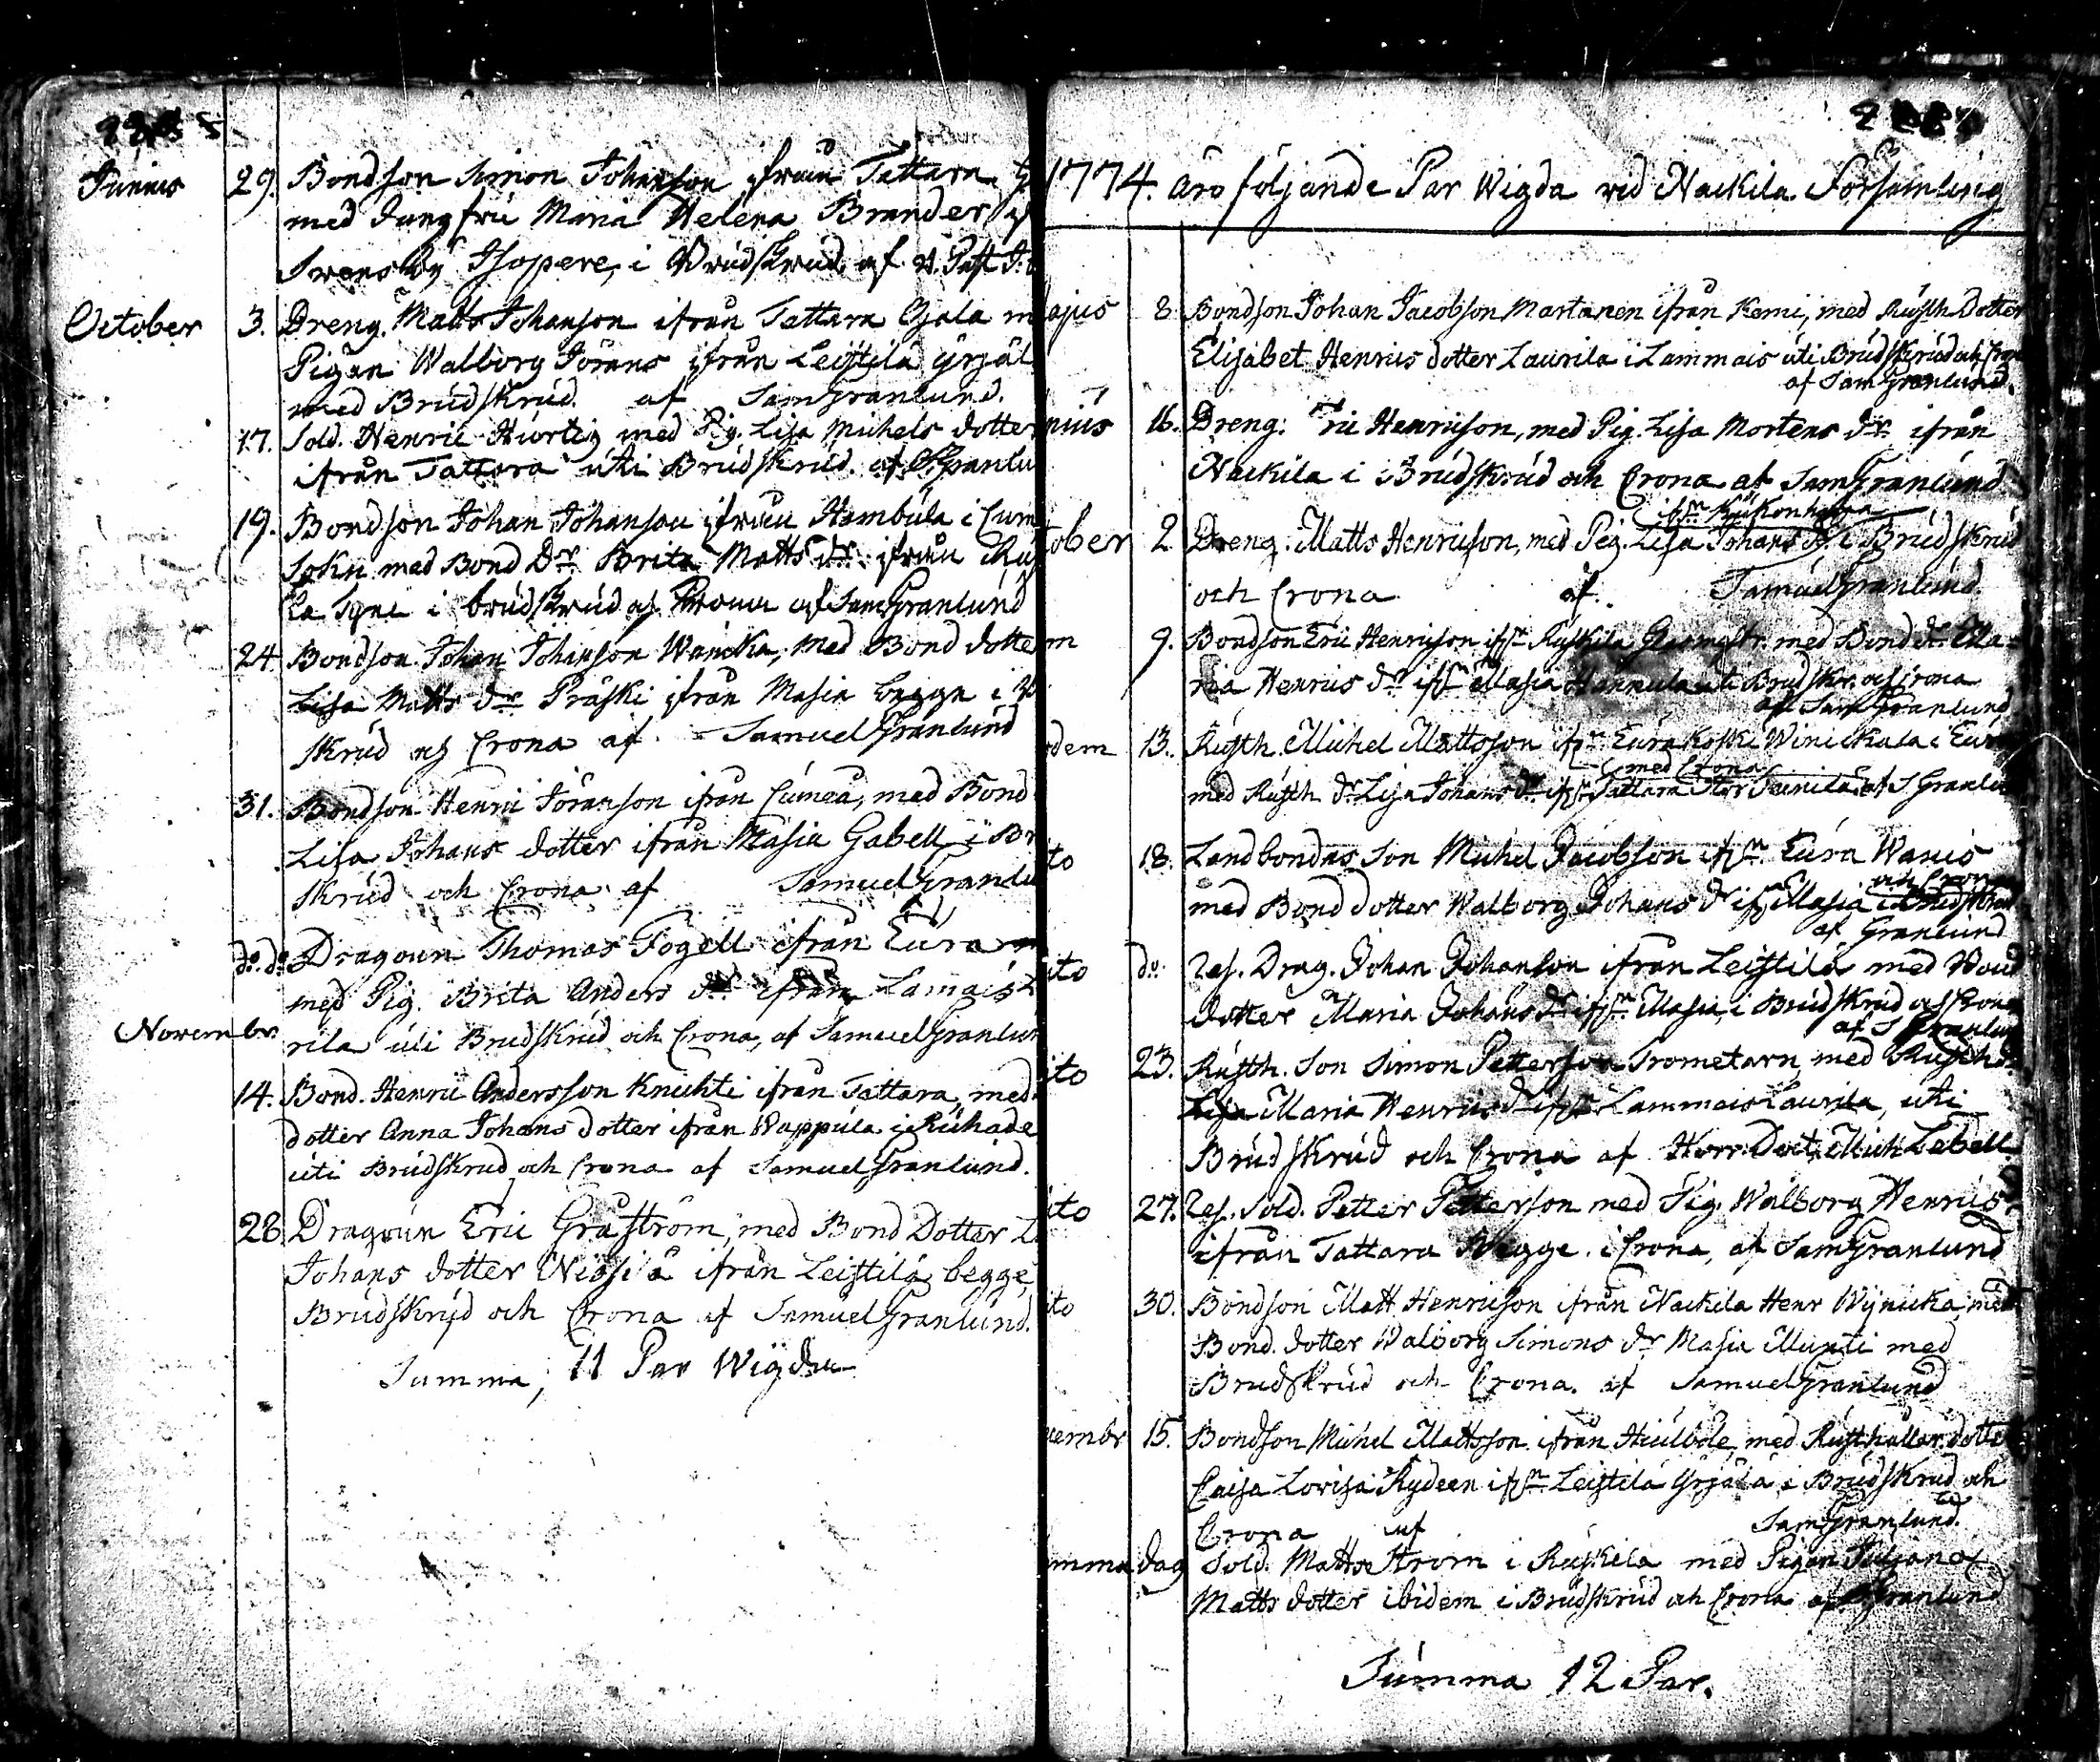 Junius 29. Bondson Simon Johanson ifrån Tattara
med Jungfru Maria Helena Brander
Swensby Isopere, i Brudskrud af
October 3. Dreng. Matts Johanson ifrån Tattara Ojala
Pigan Walborg Jörans ifrån Leistilä Yrjäl
med Brudskrud af SamGranlund.
17. Sold. Henric Hurtig med Pig. Lisa Michels dotter
ifrån Tattara uti Brudskrud af S Granlu
19. Bondson Johan Johanson ifrån Hambula i Cum
Sokn med Bond Dr Brita Matts dr ifrån
i brudskrud och Crona af SamGranlund
24. Bondson Johan Johanson Wancka, med Bond dotte
Lisa Matts dr Präski ifrån Masia begge i
skrud och Crona af Samuel Granlund
31. Bondson Henric Jöranson ifrån Cumeå, med Bond
Lisa Johans dotter ifrån Masia Gabell i Br
skrud och Crona af Samuel Granlu
do. do Dragoun Thomas Fogell ifrån Eura
med Pig. Brita Anders dr ifrån Lamais
Novembr. rila uti Brudskrud och Crona, af Samuel Granlun
14. Bond. Henric Andersson Knichti ifrån Tattara, med
dotter Anna Johans dotter ifrån Wappula i
uti Brudskrud och Crona af Samuel Granlund.
28. Dragoun Eric Gråström, med Bond Dotter
Johans dotter ifrån Leistilä begge
Brudskrud och Crona af Samuel Granlund.
Summa, 11 Par Wigda
1774. äro följande Par Wigda wid Nackila Församling
ajus 8. Bondson Johan Jacobson Martanen ifrån Kemi, med Rusth. Dotter
Elisabet Henrics dotter Laurila i Lammais uti Brudskrud och
af SamGranlund.
nius 16. Dreng. ric Henricson, med Pig. Lisa Mortens dr ifrån
Nackila i Brudskrud och Crona af SamGranlund
ifrn
tober 2 Dreng. Matts Henricson, med Pig. Lisa Johans dr i Brudskrud
och Crona af Samuel Granlund.
m 9. Bondson Eric Henricson ifrn Ruskila med Bond dr Ma-
ria Henrics dr ifrn Masia Hannula uti Brudskr. och Crona
af Sam Granlund
dem 13. Rusth. Michel Mattsson ifrn Eurakoski Winickala i Eura
med Crona
med Rusth. dr Lisa Johans dr ifrn Tattara Stor Seunila af S Granlu
to 18. Landbondas Son Michel Jacobson ifrn Eura Wanis
och Crona
med Bond dotter Walborg Johans dr ifrn Masia i Brudskrud
af Granlund
ito do. Res. Drag. Johan Johanson ifrån Leistilä med Bond
dotter Maria Johans dr ifrn Masia, i Brudskrud och Crona
af S Granlun
ito 23. Rusth. Son Simon Petterson Trometarn med Rusth.
Lisa Maria Henrics dr ifrn Lammais Laurila, uti
Brudskrud och Crona af Herr Doct. Mich Lebell
ito 27. Res. Sold. Petter Petterson med Pig. Walborg Henrics
ifrån Tattara Begge i Crona, af SamGranlund
ito 30. Bondson Matt Henricson ifrån Nackila Henr Wynicka, med
Bond. dotter Walborg Simons dr Masia Munti med
Brudskrud och Crona. af Samuel Granlund
cembr 15. Bondson Michel Mattsson ifrån Hiulböle, med Rusthållar dotte
Caisa Lovisa Rydeen ifrn Leistilä Yrjälä i Brudskrud och
Crona af SamGranlund.
mma dag Sold. Matts Ström i Ruskila med Pigan Juliana
Matts dotter ibidem i Brudskrud och Crona af Granlund
Summa 12 Par.